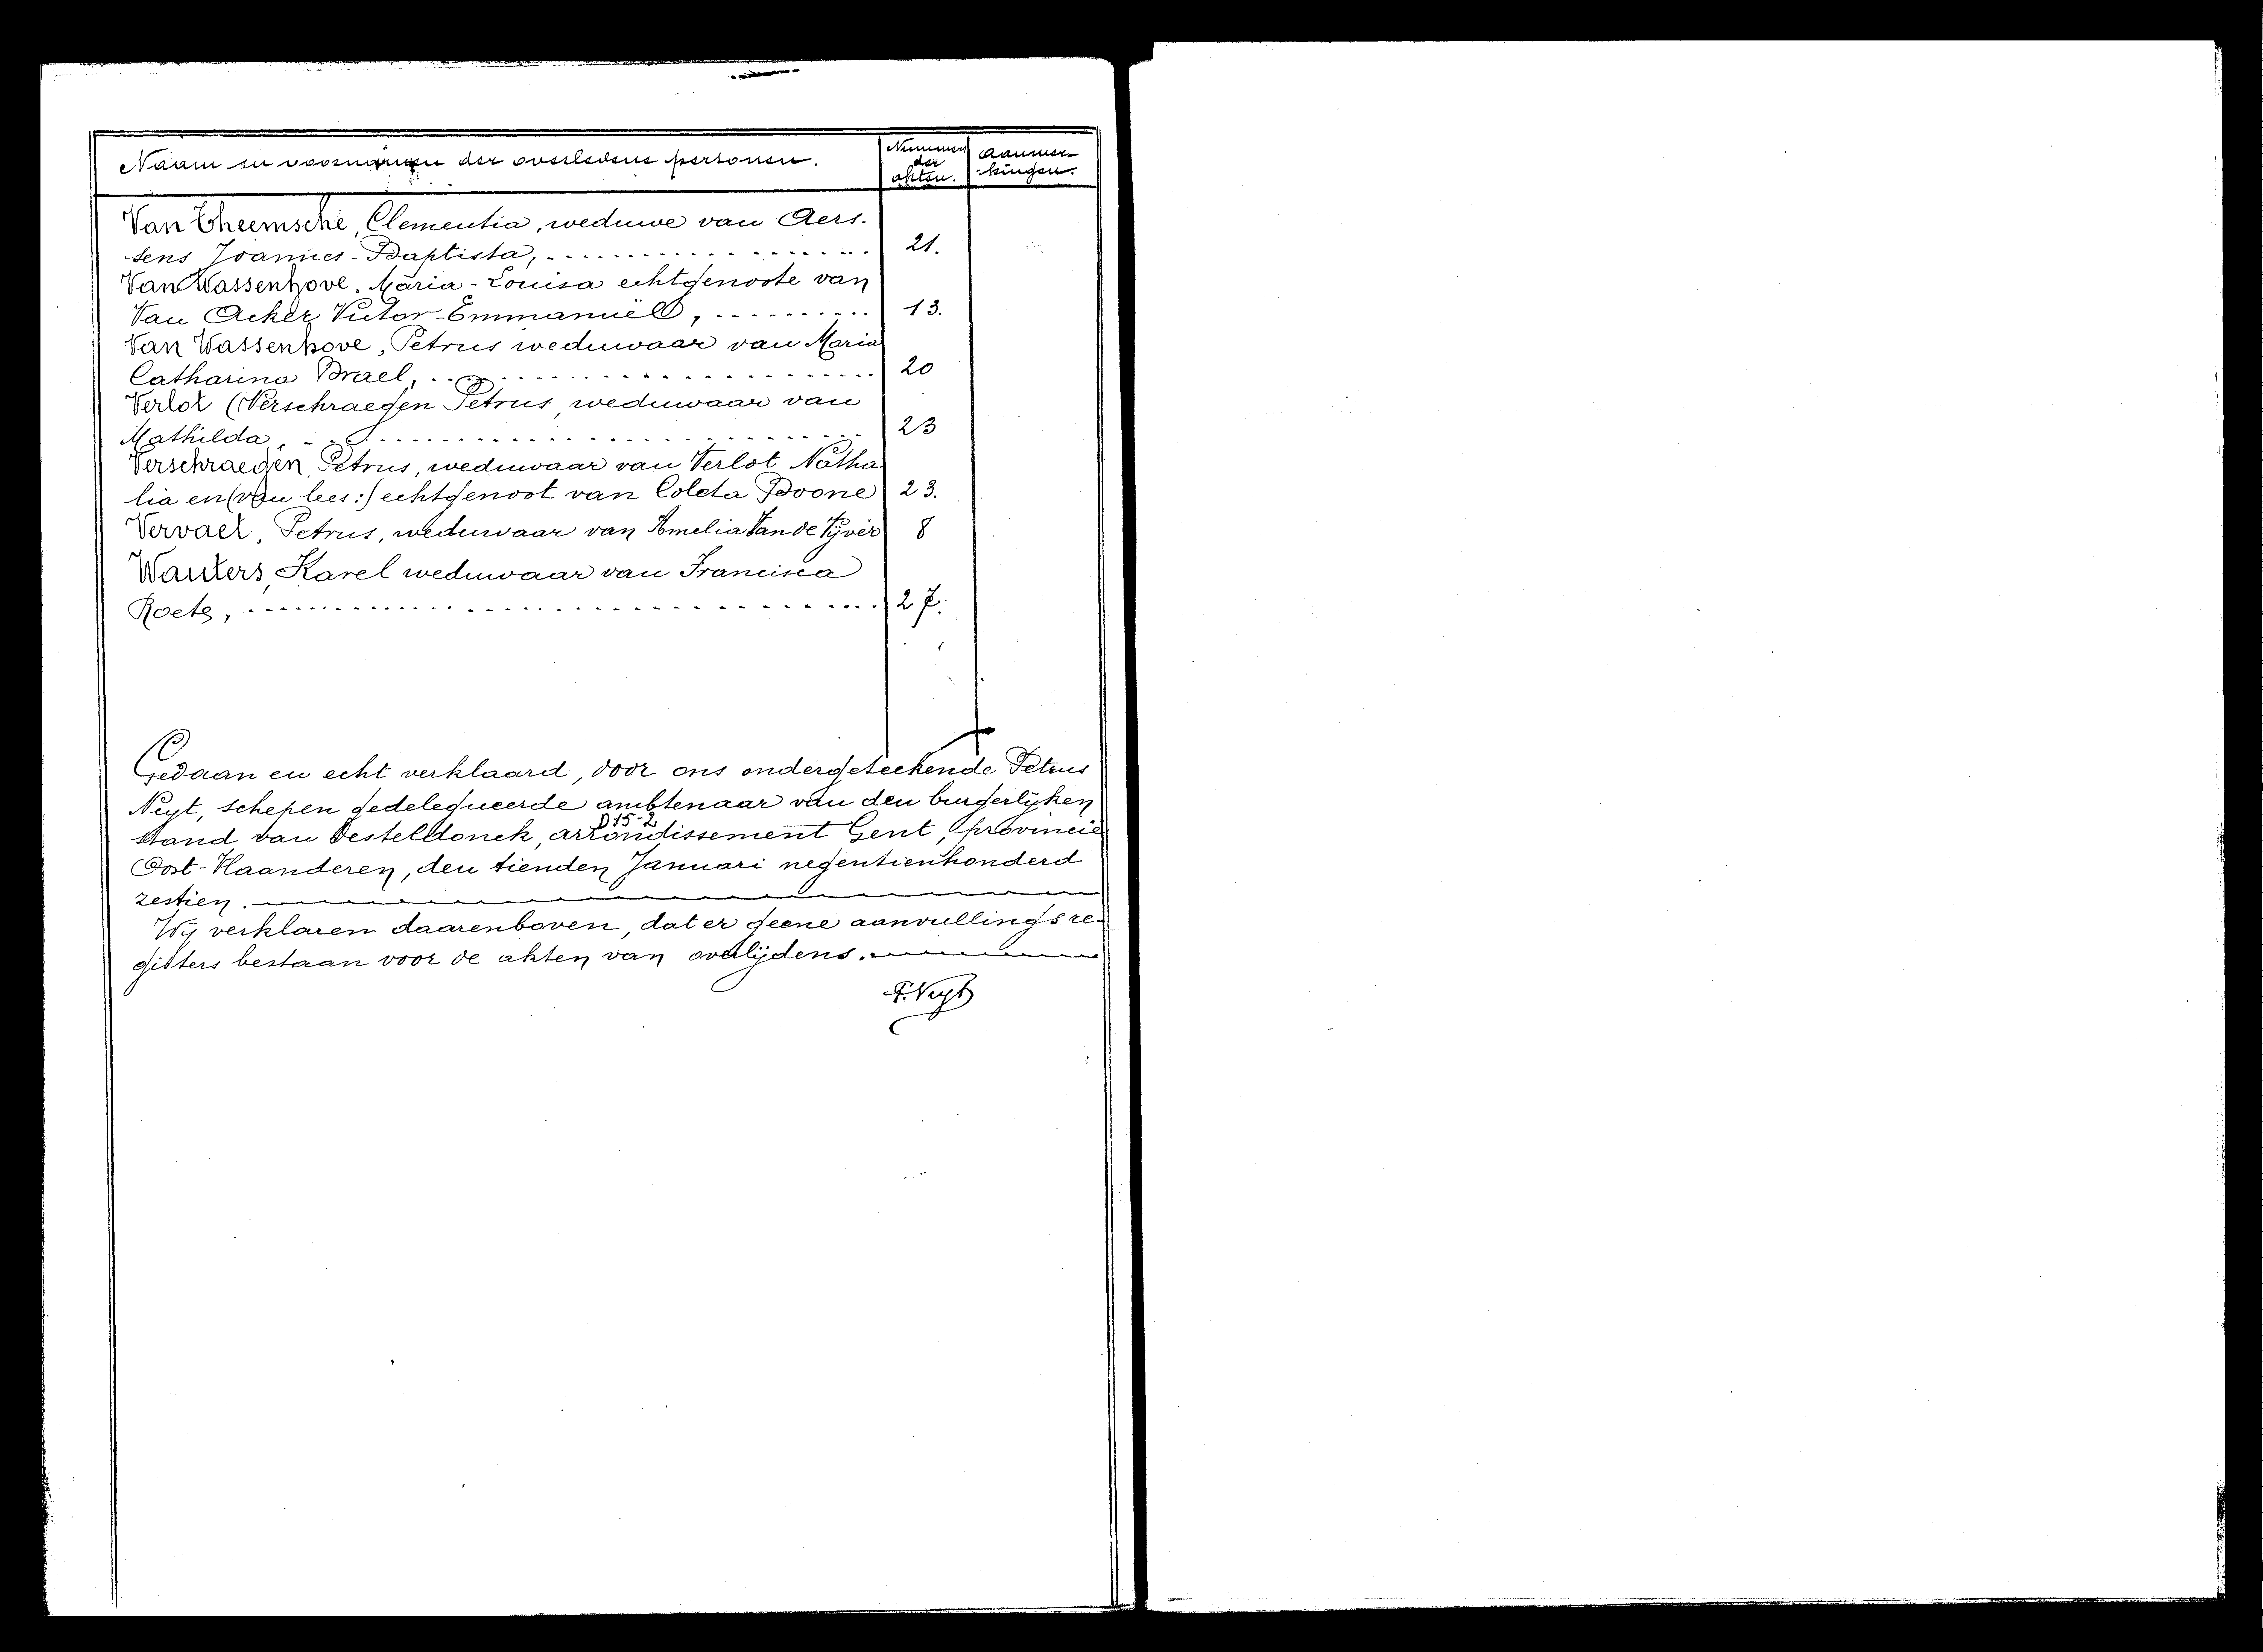 Naam en voornamen der overledene personen.
Nummer der akten.
Aanmer-kingen.
Van Cheemsche, Clementia, weduwe van Aers-
sens Joannes-Baptista, 21.
Van Wassenhove, Maria-Louisa echtgenoote van
Van Acker Victor-Emmanuël, 13.
Van Wassenhove, Petrus weduwaar van Maria
Catharina Brael, 20
Verlot (Verschraegen Petrus, weduwaar van
Mathilda, 23
Verschraegen, Petrus, weduwaar van Verlot Natha
lia en (van lees:) echtgenoot van Coleta Boone 23.
Vervaet, Petrus, weduwaar van Amelia Van de Vyver 8
Wauters, Karel weduwaar van Francisca
Roets, 27.
Gedaan en echt verklaard, door ons ondergeteekende Petrus
Neyt, schepen gedelegueerde ambtenaar van den burgerlijken
D15-2
stand van Desteldonck, arrondissement Gent, provincie
Oost-Vlaanderen, den tienden Januari negentienhonderd
zestien.
Wij verklaren daarenboven, dat er geene aanvullingsre-
gisters bestaan voor de akten van overlijdens.
P. Neyt